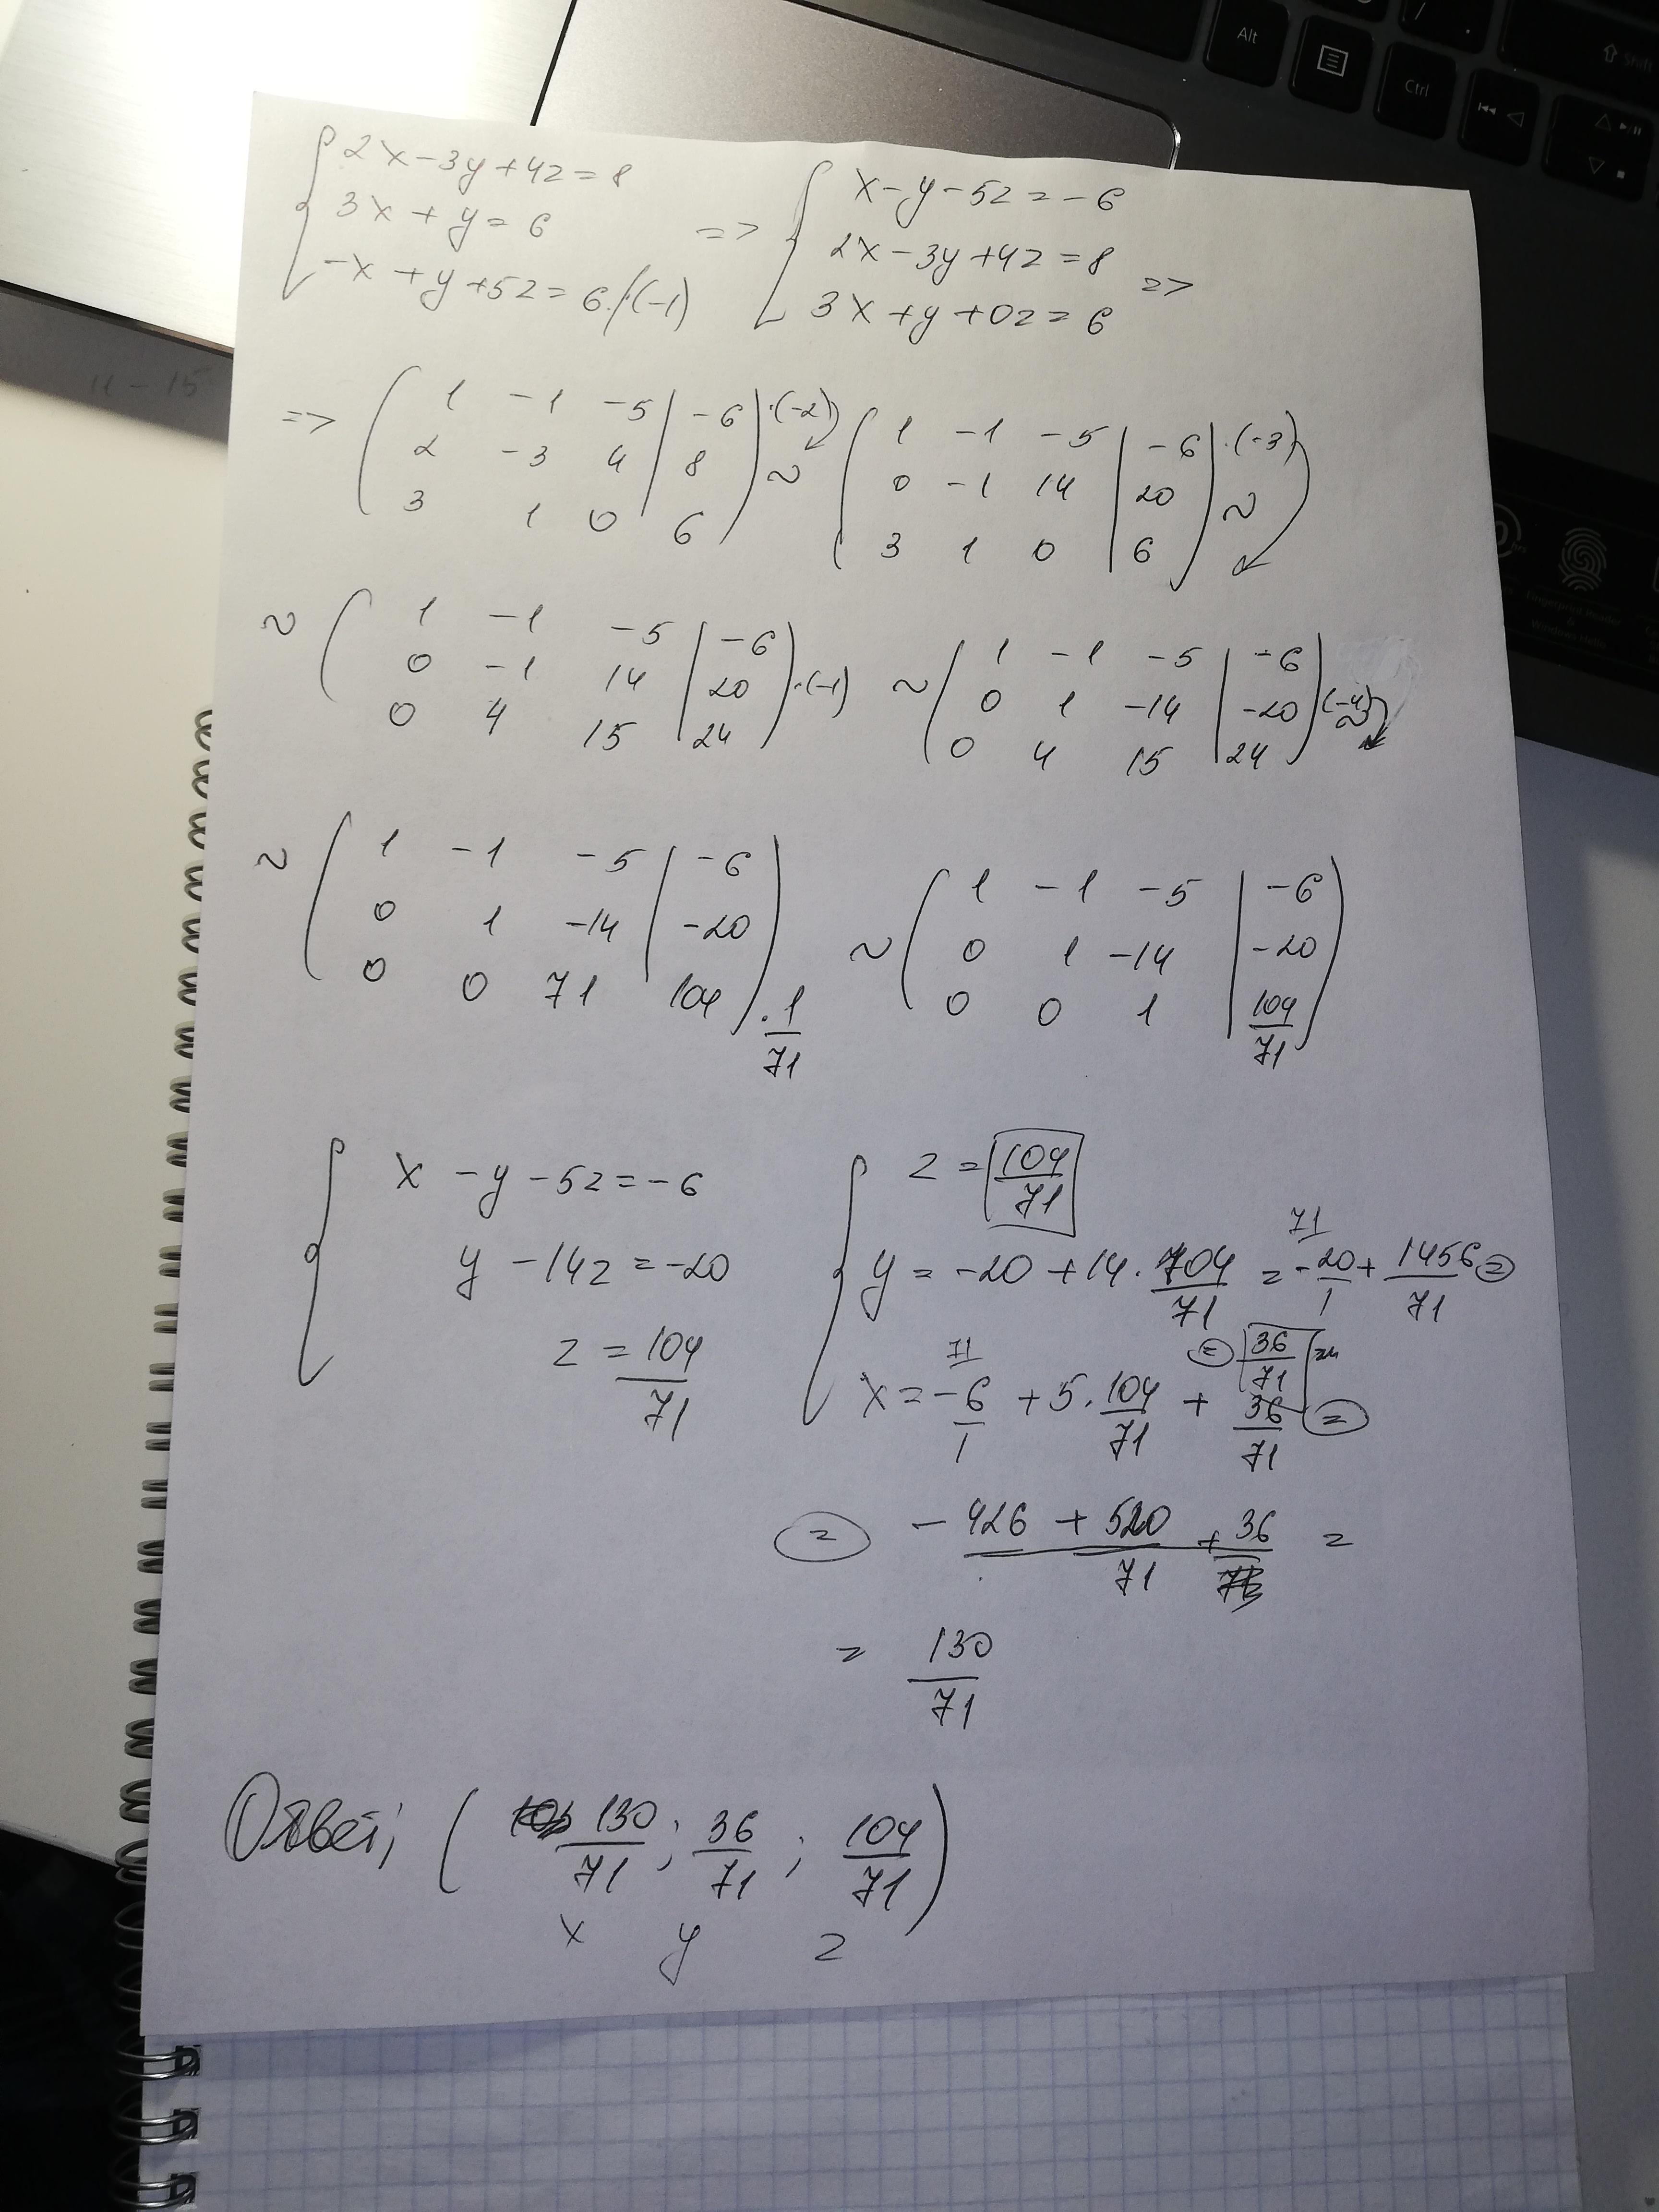 Alt
Ctrl
Shift
Fingerprint Reader
&
Windows Hello
11 - 15
2x - 3y + 4z = 8
3x + y = 6
-x + y + 5z = 6 /·(-1)
=>
x - y - 5z = -6
2x - 3y + 4z = 8
3x + y + 0z = 6
=>
=> ( 1 -1 -5 | -6 ) ·(-2)
2 -3 4 | 8
3 1 0 | 6
~ ( 1 -1 -5 | -6 ) ·(-3)
0 -1 14 | 20
3 1 0 | 6
~
~ ( 1 -1 -5 | -6 )
0 -1 14 | 20 ·(-1)
0 4 15 | 24
~ ( 1 -1 -5 | -6 )
0 1 -14 | -20 (-4)
0 4 15 | 24
~
~ ( 1 -1 -5 | -6 )
0 1 -14 | -20
0 0 71 | 104 · 1/71
~ ( 1 -1 -5 | -6 )
0 1 -14 | -20
0 0 1 | 104/71
x - y - 5z = -6
y - 14z = -20
z = 104/71
z = 104/71
y = -20 + 14 · 104/71 = 71 -20/1 + 1456/71 =
= 36/71
x = 71 -6/1 + 5 · 104/71 + 36/71 =
= -426 + 520 + 36 / 71 =
= 130/71
Ответ: ( 130/71 ; 36/71 ; 104/71 )
x y z